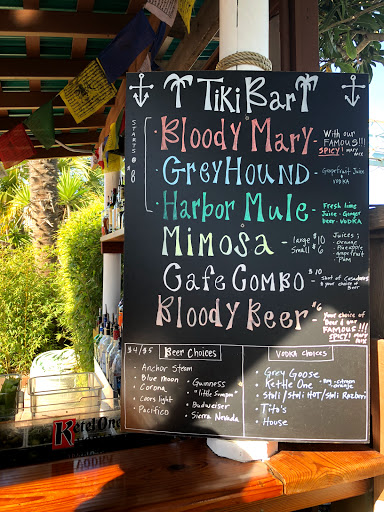 TIKI BAR
STARTS @ $8
Bloody Mary - With our FAMOUS!!! SPICY! mary mix
GREYHOUND - Grapefruit Juice VODKA
Harbor Mule - Fresh lime Juice - Ginger beer - VODKA
MIMOSA - large $10 Small $6
Juices:
• orange
• Pineapple
• grapefruit
Cafe COMBO $10 Shot of
& your choice of Beer
Bloody BEER $6 Your choice of Beer & our FAMOUS!!! SPICY! mary mix
$4/$5 Beer Choices
• Anchor Steam
• Blue Moon
• Corona
• Coors light
• Pacifico
• Guinness
• "little Sumpin"
• Budweiser
• Sierra Nevada
VODKA CHOICES
• Grey Goose
• Kettle One - Reg - citron - orange
• Stoli / Stoli HOT / Stoli Razberi
• Tito's
• House
Ketel One
VODKA